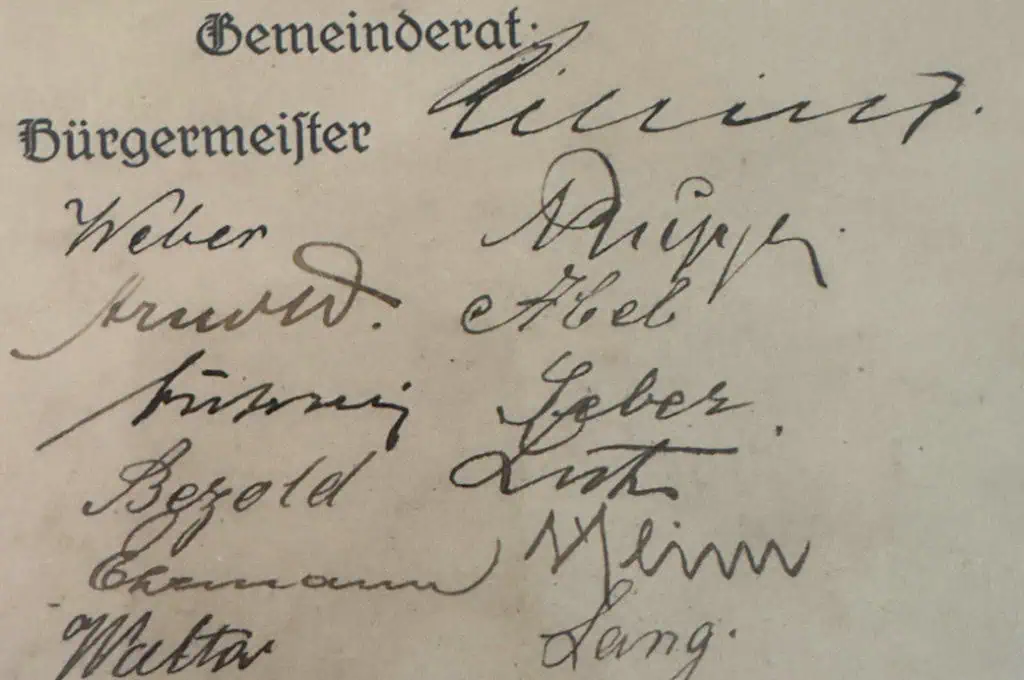 Gemeinderat:
Bürgermeister
Weber Rupp.
Arnold. Abel
Bezold Lutz
Ehemann Klein
Walter Lang.